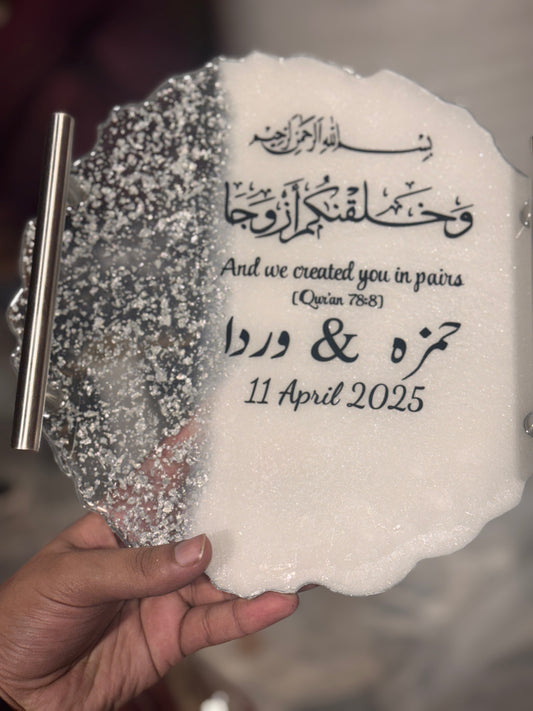 بسم الله الرحمن الرحيم
وَخَلَقْنَٰكُمْ أَزْوَٰجًا
And we created you in pairs
[Qur'an 78:8]
حمزه & وردا
11 April 2025